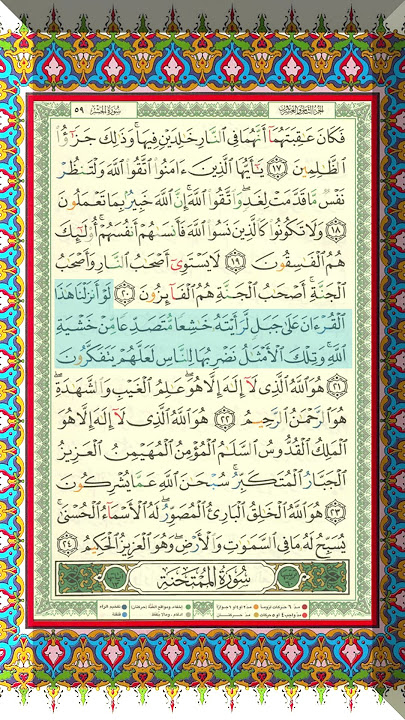 سُورَةُ الحَشْرِ ٥٩
فَكَانَ عَٰقِبَتَهُمَآ أَنَّهُمَا فِى ٱلنَّارِ خَٰلِدَيْنِ فِيهَا ۚ وَذَٰلِكَ جَزَٰٓؤُا۟
ٱلظَّٰلِمِينَ ١٧ يَٰٓأَيُّهَا ٱلَّذِينَ ءَامَنُوا۟ ٱتَّقُوا۟ ٱللَّهَ وَلْتَنظُرْ
نَفْسٌ مَّا قَدَّمَتْ لِغَدٍ ۖ وَٱتَّقُوا۟ ٱللَّهَ ۚ إِنَّ ٱللَّهَ خَبِيرٌۢ بِمَا تَعْمَلُونَ
١٨ وَلَا تَكُونُوا۟ كَٱلَّذِينَ نَسُوا۟ ٱللَّهَ فَأَنسَىٰهُمْ أَنفُسَهُمْ ۚ أُو۟لَٰٓئِكَ
هُمُ ٱلْفَٰسِقُونَ ١٩ لَا يَسْتَوِىٓ أَصْحَٰبُ ٱلنَّارِ وَأَصْحَٰبُ
ٱلْجَنَّةِ ۚ أَصْحَٰبُ ٱلْجَنَّةِ هُمُ ٱلْفَآئِزُونَ ٢٠ لَوْ أَنزَلْنَا هَٰذَا
ٱلْقُرْءَانَ عَلَىٰ جَبَلٍ لَّرَأَيْتَهُۥ خَٰشِعًا مُّتَصَدِّعًا مِّنْ خَشْيَةِ
ٱللَّهِ ۚ وَتِلْكَ ٱلْأَمْثَٰلُ نَضْرِبُهَا لِلنَّاسِ لَعَلَّهُمْ يَتَفَكَّرُونَ
٢١ هُوَ ٱللَّهُ ٱلَّذِى لَآ إِلَٰهَ إِلَّا هُوَ ۖ عَٰلِمُ ٱلْغَيْبِ وَٱلشَّهَٰدَةِ ۖ
هُوَ ٱلرَّحْمَٰنُ ٱلرَّحِيمُ ٢٢ هُوَ ٱللَّهُ ٱلَّذِى لَآ إِلَٰهَ إِلَّا هُوَ
ٱلْمَلِكُ ٱلْقُدُّوسُ ٱلسَّلَٰمُ ٱلْمُؤْمِنُ ٱلْمُهَيْمِنُ ٱلْعَزِيزُ
ٱلْجَبَّارُ ٱلْمُتَكَبِّرُ ۚ سُبْحَٰنَ ٱللَّهِ عَمَّا يُشْرِكُونَ
٢٣ هُوَ ٱللَّهُ ٱلْخَٰلِقُ ٱلْبَارِئُ ٱلْمُصَوِّرُ ۖ لَهُ ٱلْأَسْمَآءُ ٱلْحُسْنَىٰ ۚ
يُسَبِّحُ لَهُۥ مَا فِى ٱلسَّمَٰوَٰتِ وَٱلْأَرْضِ ۖ وَهُوَ ٱلْعَزِيزُ ٱلْحَكِيمُ ٢٤
سُورَةُ المُمْتَحَنَةِ